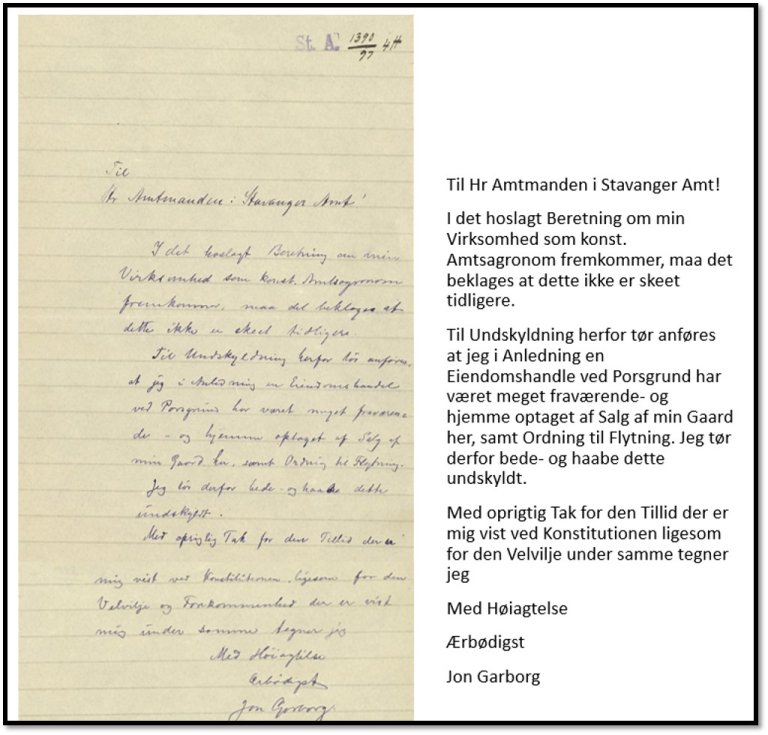 St. A. 1390/97 4H
Til
Hr Amtmanden i Stavanger Amt!
I det hoslagt Beretning om min
Virksomhed som konst. Amtsagronom
fremkommer, maa det beklages at
dette ikke er skeet tidligere.
Til Undskyldning herfor tør anføres,
at jeg i Anledning en Eiendomshandel
ved Porsgrund har været meget fraværen-
de - og hjemme optaget af Salg af
min Gaard her, samt Ordning til Flytning.
Jeg tør derfor bede - og haabe dette
undskyldt.
Med oprigtig Tak for den Tillid der er
mig vist ved Konstitutionen ligesom for den
Velvilje og Forekommenhed der er vist
mig under samme tegner jeg
Med Høiagtelse
Ærbødigst
Jon Garborg.
Til Hr Amtmanden i Stavanger Amt!
I det hoslagt Beretning om min
Virksomhed som konst.
Amtsagronom fremkommer, maa det
beklages at dette ikke er skeet
tidligere.
Til Undskyldning herfor tør anføres
at jeg i Anledning en
Eiendomshandle ved Porsgrund har
været meget fraværende- og
hjemme optaget af Salg af min Gaard
her, samt Ordning til Flytning. Jeg tør
derfor bede- og haabe dette
undskyldt.
Med oprigtig Tak for den Tillid der er
mig vist ved Konstitutionen ligesom
for den Velvilje under samme tegner
jeg
Med Høiagtelse
Ærbødigst
Jon Garborg